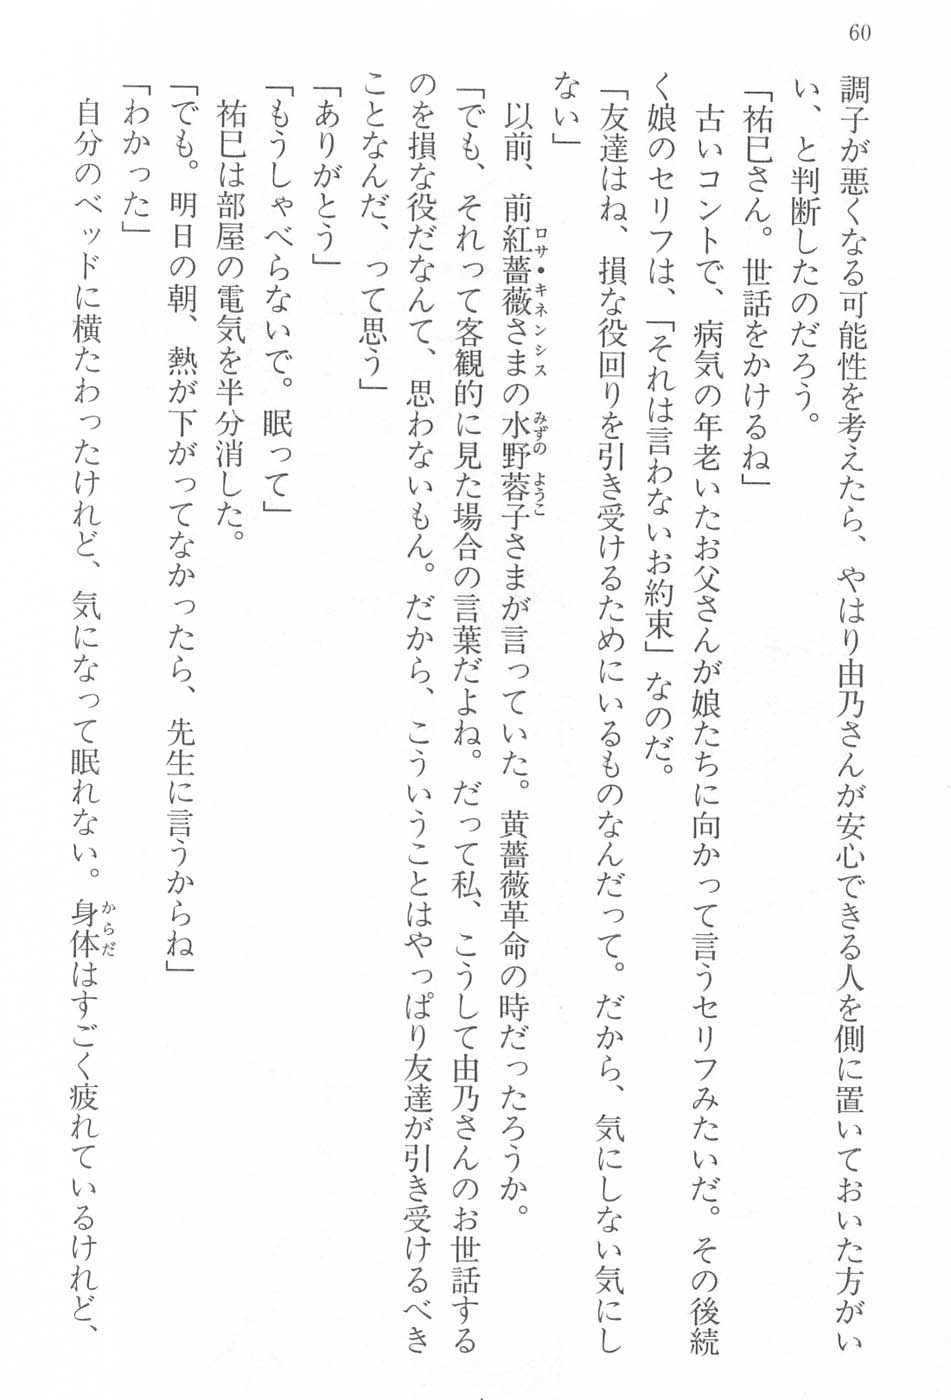 60
調子が悪くなる可能性を考えたら、やはり由乃さんが安心できる人を側に置いておいた方がい
い、と判断したのだろう。
「祐巳さん。世話をかけるね」
古いコントで、病気の年老いたお父さんが娘たちに向かって言うセリフみたいだ。その後続
く娘のセリフは、「それは言わないお約束」なのだ。
「友達はね、損な役回りを引き受けるためにいるものなんだって。だから、気にしない気にし
ない」
以前、前紅薔薇さまの水野蓉子さまが言っていた。黄薔薇革命の時だったろうか。
ロサ・キネンシス
みずの ようこ
「でも、それって客観的に見た場合の言葉だよね。だって私、こうして由乃さんのお世話する
のを損な役だなんて、思わないもん。だから、こういうことはやっぱり友達が引き受けるべき
ことなんだ、って思う」
「ありがとう」
「もうしゃべらないで。眠って」
祐巳は部屋の電気を半分消した。
「でも。明日の朝、熱が下がってなかったら、先生に言うからね」
「わかった」
自分のベッドに横たわったけれど、気になって眠れない。身体はすごく疲れているけれど、
からだ